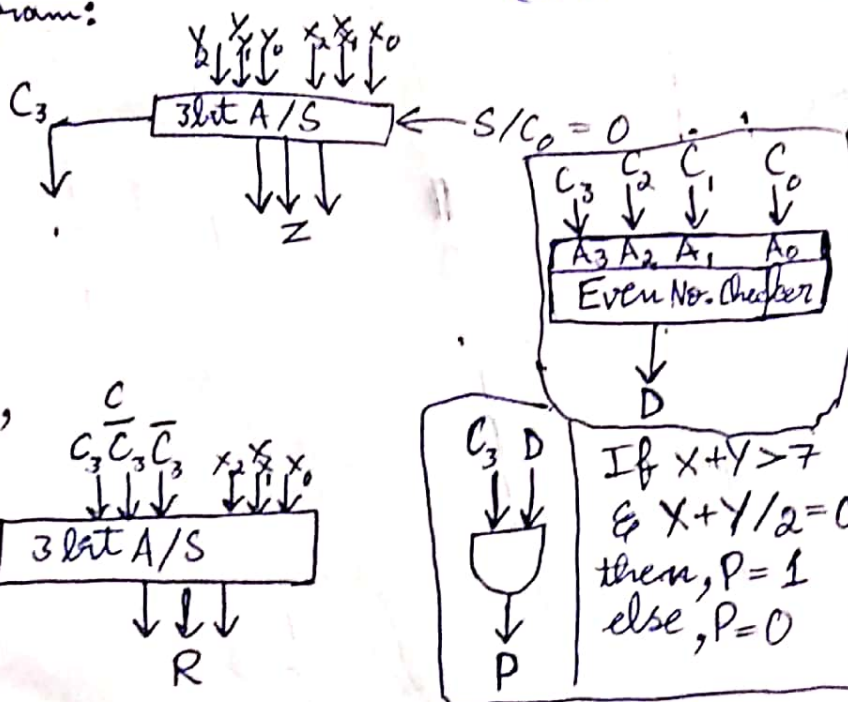 ram:
Y₂ Y₁ Y₀ X₂ X₁ X₀
C₃
3bit A/S
S/C₀ = 0
Z
C₃ C₂ C₁ C₀
A₃ A₂ A₁ A₀
Even No. Checker
D
,
C
C₃ C̅₃ C̅₃ X₂ X₁ X₀
3 bit A/S
R
C₃ D
P
If X+Y>7
& X+Y/2=0
then, P=1
else, P=0